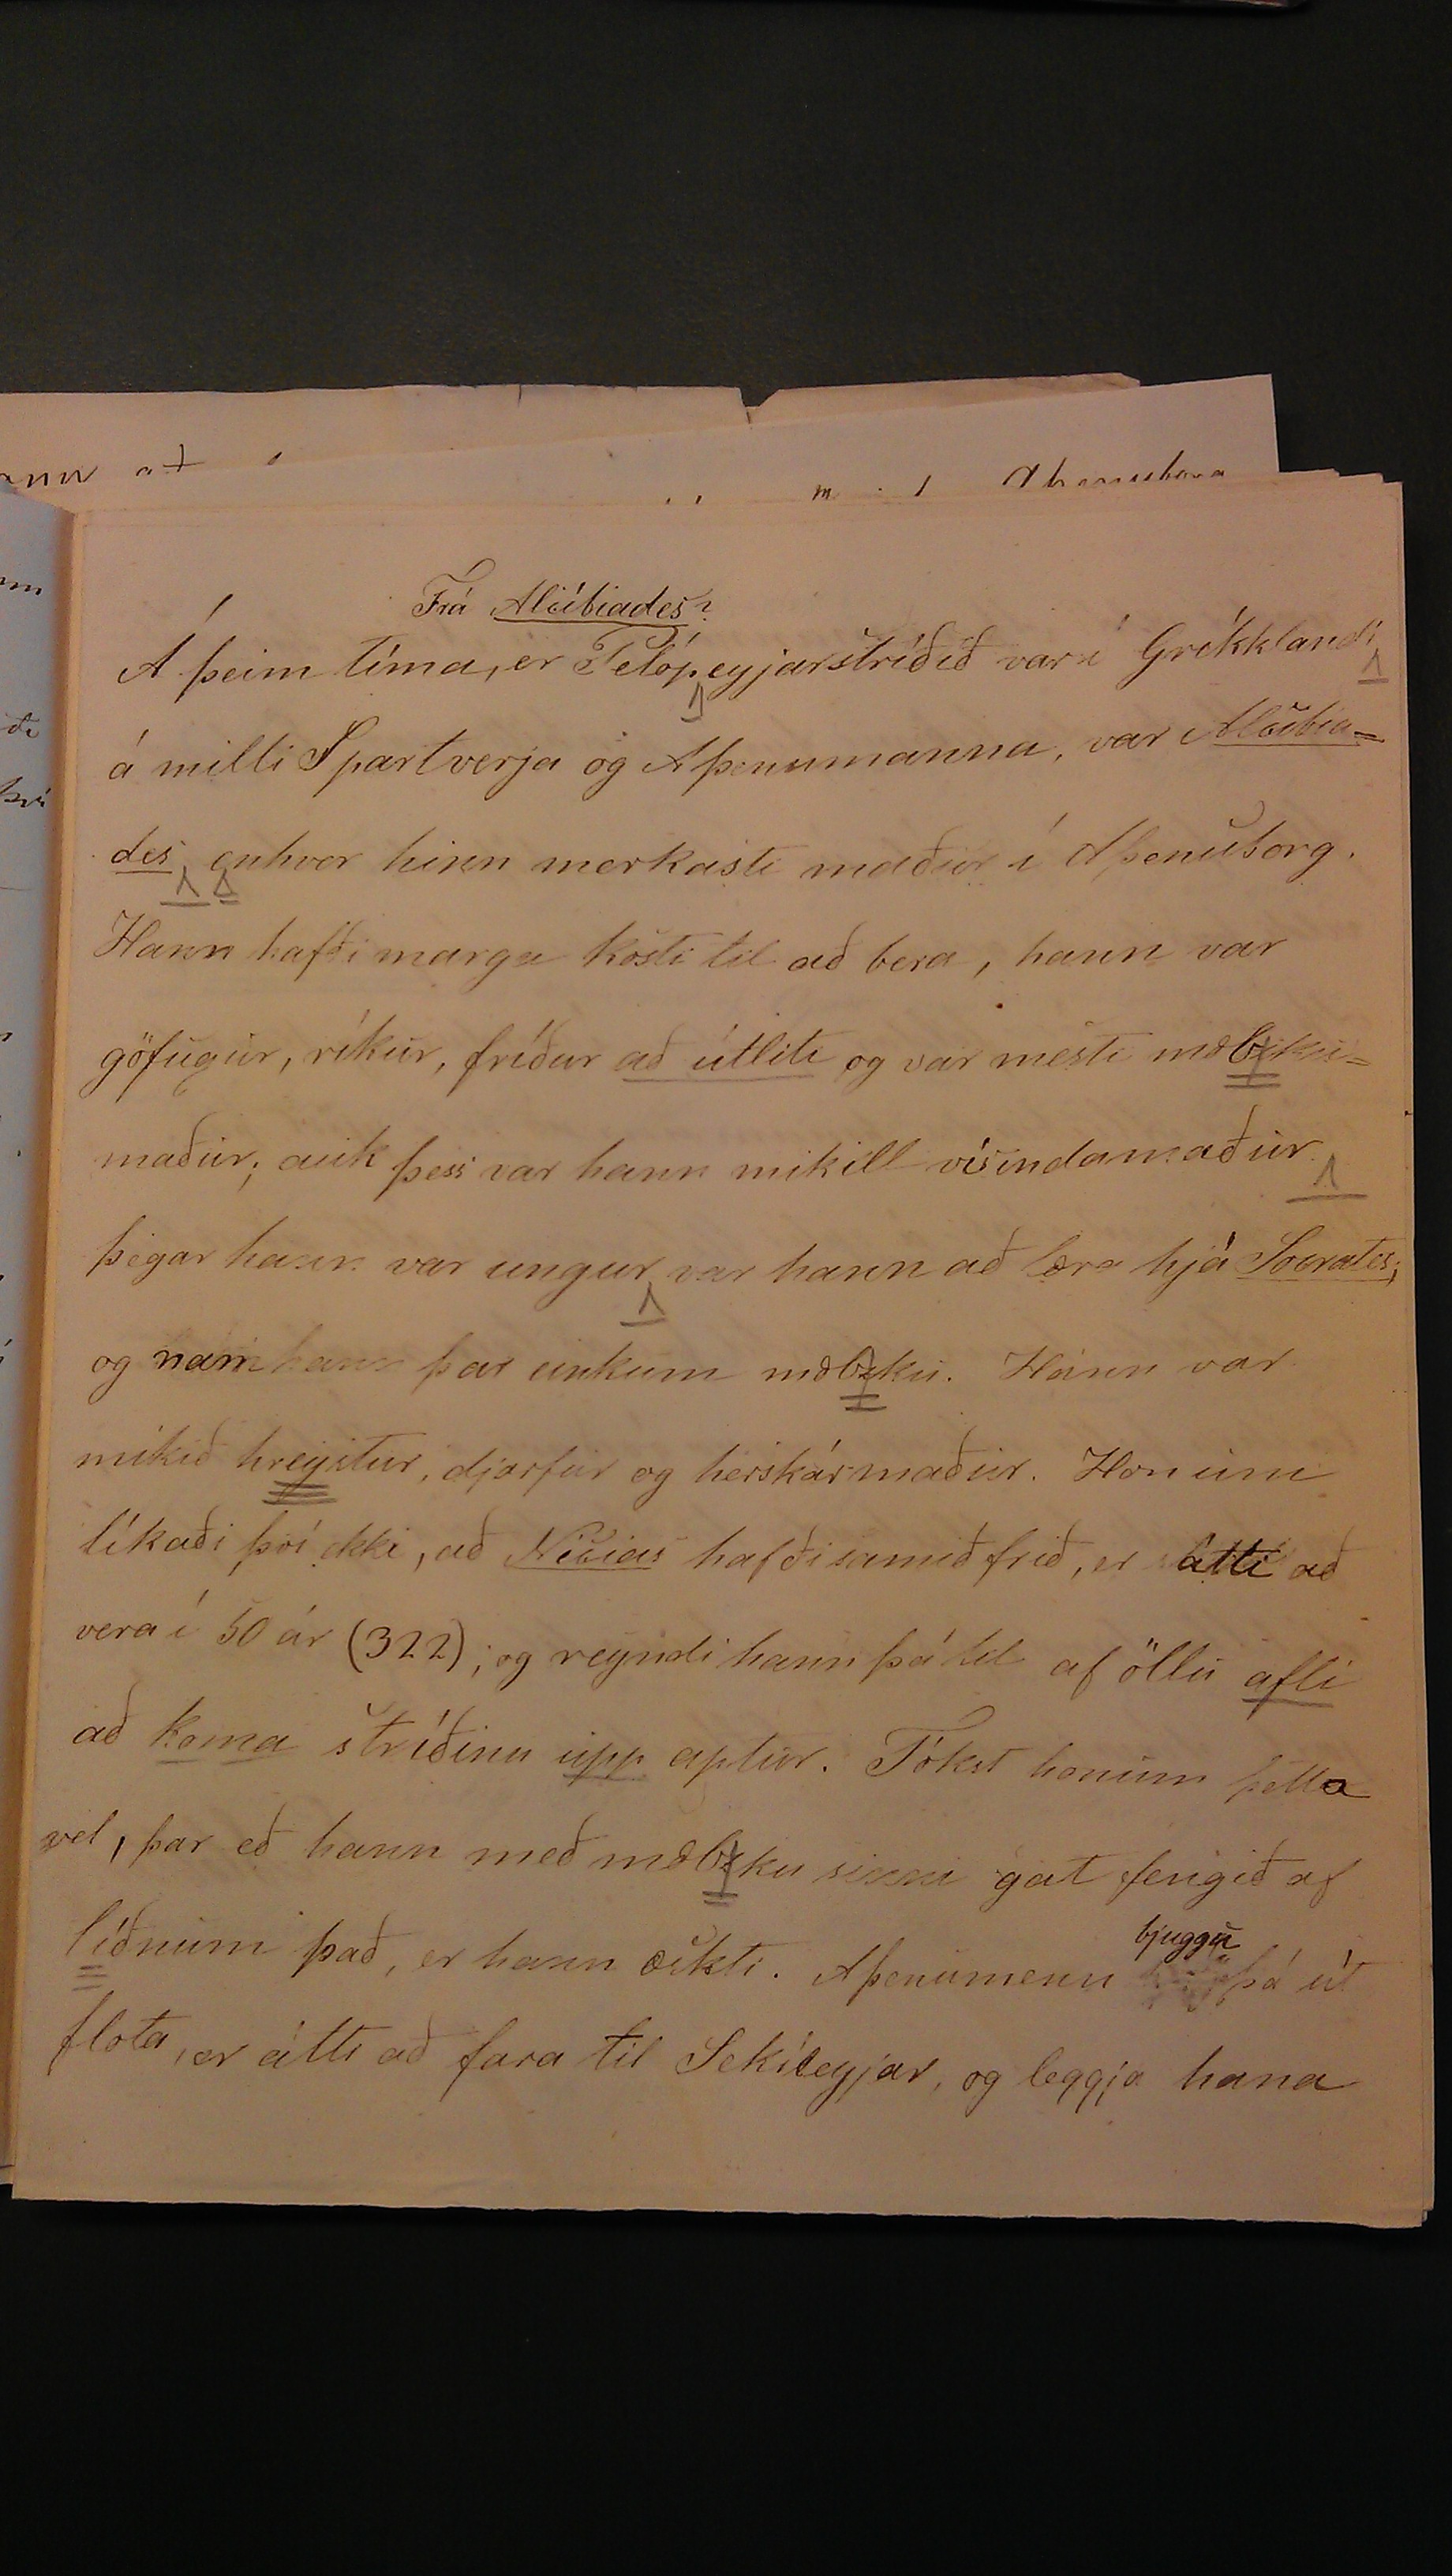 Frá Alcibiades?
Á þeim tíma, er Pelópeyjarstríðið var í Grikklandi
á milli Spartverja og Aþenumanna, var Alcibia=
des enhver hinn merkasti maður í Aþenuborg.
Hann hafði marga kosti til að bera, hann var
göfugur, ríkur, fríður að útliti og var mesti mælsku=
maður; auk þess var hann mikill vísindamaður
þegar hann var ungur var hann að læra hjá Socrates;
og nam hann þar einkum mælsku. Hann var
mikið hreystur, djarfur og herskár maður. Honum
líkaði því ekki, að Nicias hafði samið frið, er átti að
vera í 50 ár (322); og reyndi hann þá til af öllu afli
að koma stríðinu upp aptur. Tókst honum þetta
vel, þar eð hann með mælsku sinni gat fengið af
líðnum það, er hann æskti. Aþenumenn bjuggu þá út
flota, er átti að fara til Sekileyjar, og leggja hana